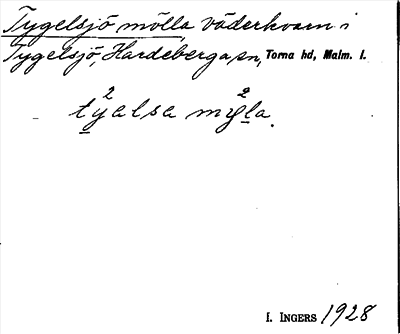 Tygelsjö mölla väderkvarn i
Tygelsjö, Hardeberga sn, Torna hd, Malm. l.
I. INGERS 1928